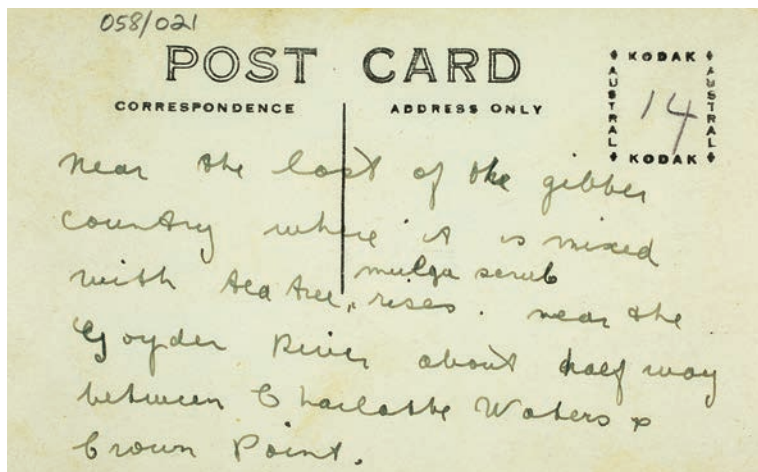 058/021
POST CARD
CORRESPONDENCE
ADDRESS ONLY
KODAK
AUSTRAL
14
AUSTRAL
KODAK
near the last of the gibber
country where it is mixed
mulga scrub
with tea tree, rises. near the
Goyder River about half way
between Charlotte Waters &
Crown Point.